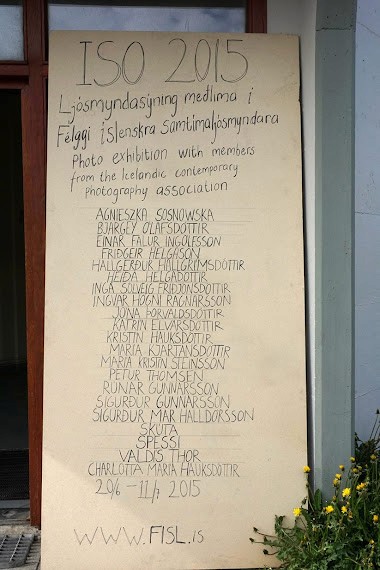 ISO 2015
Ljósmyndasýning meðlima í
Félggi íslenskra samtímaljósmyndara
Photo exhibition with members
from the Icelandic contemporary
photography association
AGNIESZKA SOSNOWSKA
BJARGEY ÓLAFSDÓTTIR
EINAR FALUR INGÓLFSSON
FRIÐGEIR HELGASON
HALLGERÐUR HALLGRÍMSDÓTTIR
HEIÐA HELGADÓTTIR
INGA SÓLVEIG FRIÐJÓNSDÓTTIR
INGVAR HÖGNI RAGNARSSON
JÓNA ÞORVALDSDÓTTIR
KATRÍN ELVARSDÓTTIR
KRISTÍN HAUKSDÓTTIR
MARÍA KJARTANSDÓTTIR
MARÍA KRISTÍN STEINSSON
PÉTUR THOMSEN
RÚNAR GUNNARSSON
SIGURÐUR GUNNARSSON
SIGURÐUR MAR HALLDÓRSSON
SKÚTA
SPESSI
VALDÍS THOR
CHARLOTTA MARÍA HAUKSDÓTTIR
20/6 - 11/7 2015
WWW.FISL.IS